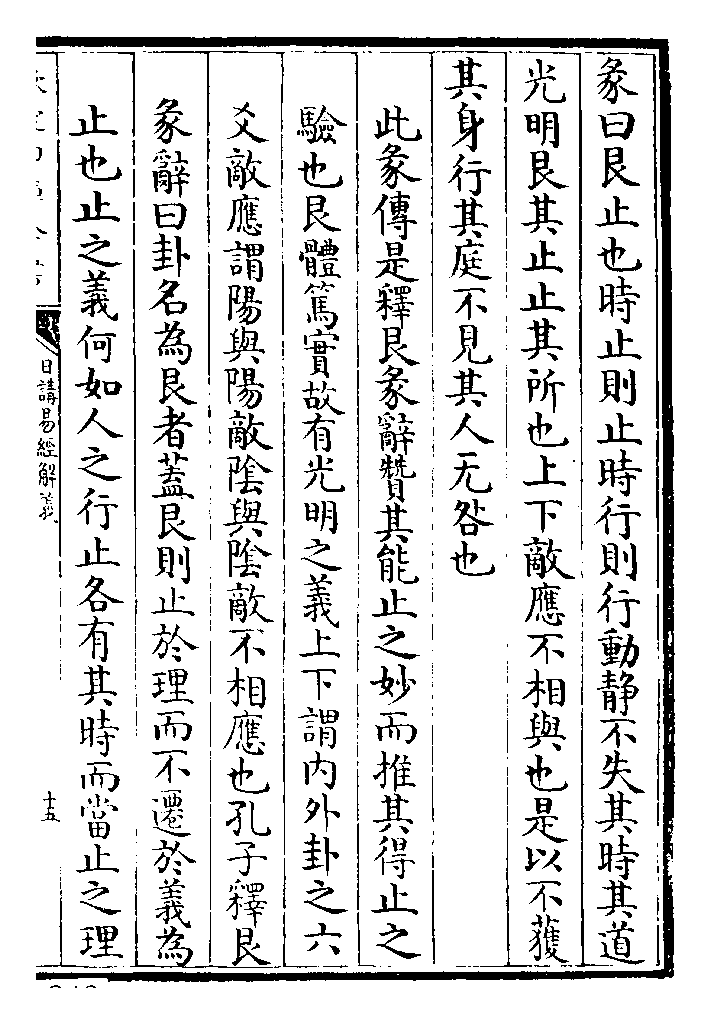 彖曰艮止也時止則止時行則行動静不失其時其道
光明艮其止止其所也上下敵應不相與也是以不獲
其身行其庭不見其人无咎也
此彖傳是釋艮彖辭贊其能止之妙而推其得止之
驗也艮體篤實故有光明之義上下謂内外卦之六
爻敵應謂陽與陽敵陰與陰敵不相應也孔子釋艮
彖辭曰卦名為艮者蓋艮則止於理而不遷於義為
止也止之義何如人之行止各有其時而當止之理
日講易經解義
十五